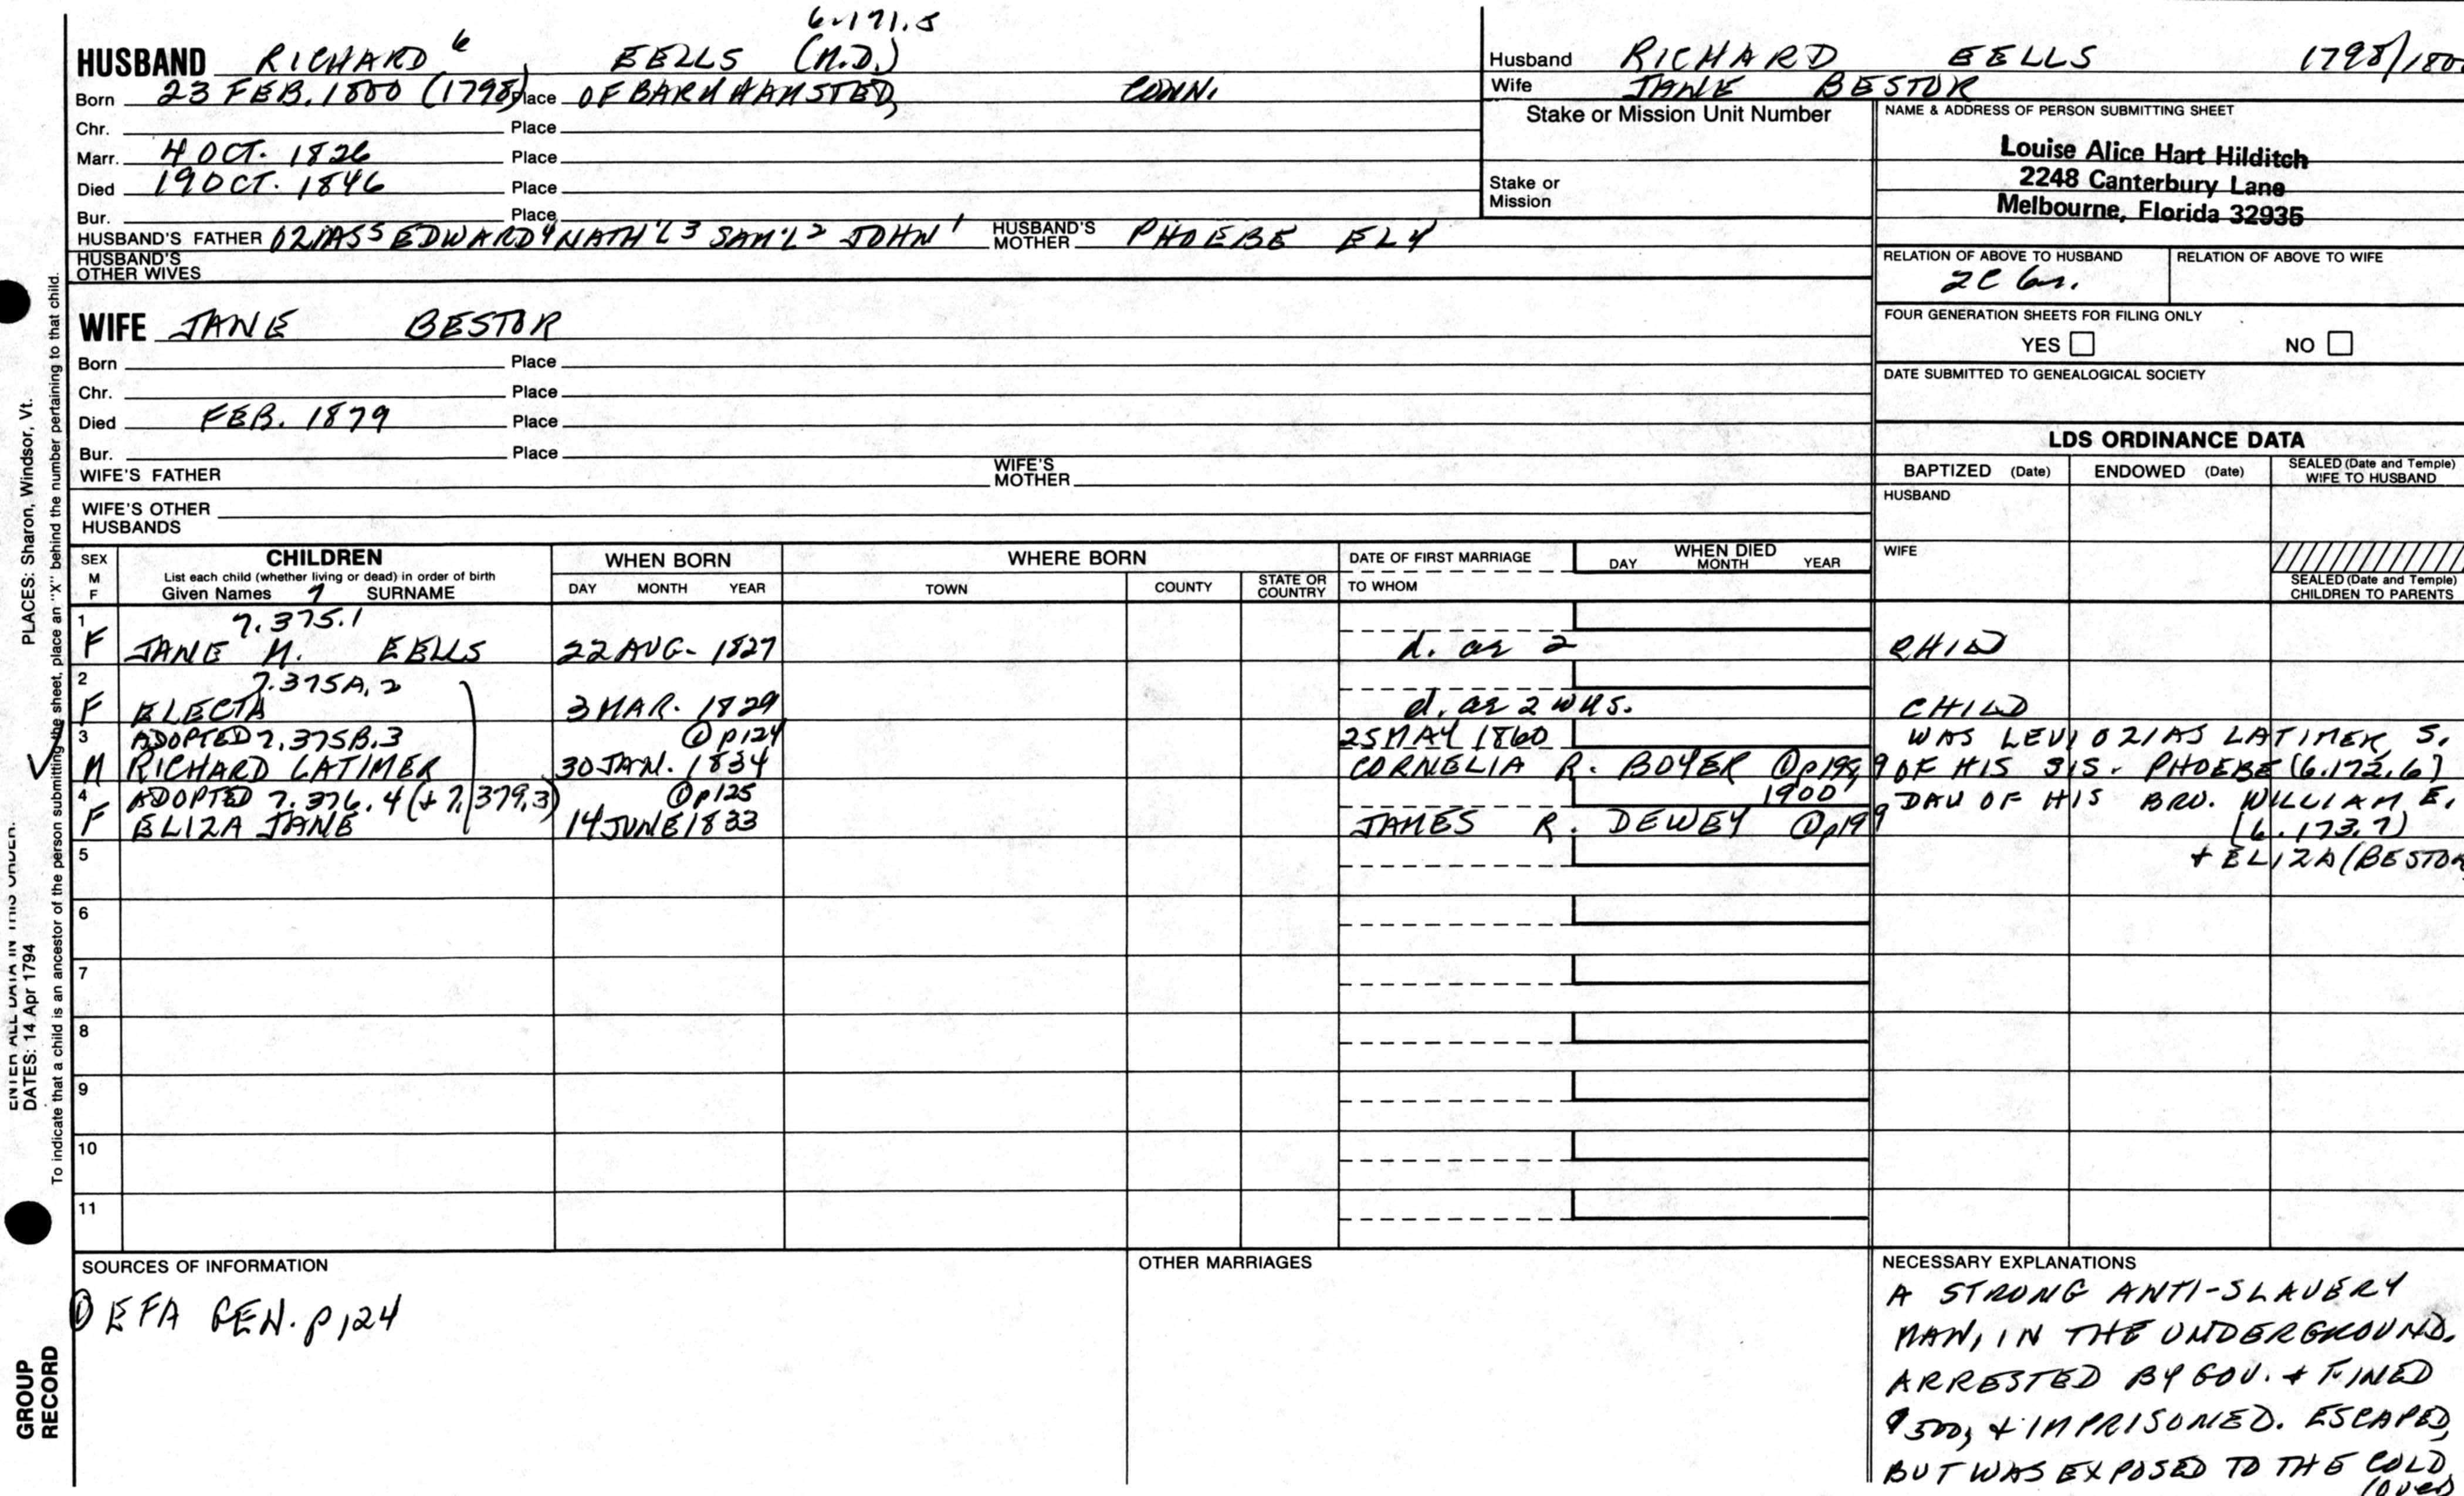 6.171.5
HUSBAND RICHARD 6 EELLS (M.D.)
Born 23 FEB. 1800 (1798) Place OF BARKHAMSTED, CONN.
Chr. Place
Marr. 4 OCT. 1826 Place
Died 19 OCT. 1846 Place
Bur. Place
HUSBAND'S FATHER OZIAS 5 EDWARD 4 NATH'L 3 SAM'L 2 JOHN 1 HUSBAND'S MOTHER PHOEBE ELY
HUSBAND'S OTHER WIVES
WIFE JANE BESTOR
Born Place
Chr. Place
Died FEB. 1879 Place
Bur. Place
WIFE'S FATHER WIFE'S MOTHER
WIFE'S OTHER HUSBANDS
Husband RICHARD EELLS 1798/180
Wife JANE BESTOR
Stake or Mission Unit Number
Stake or Mission
NAME & ADDRESS OF PERSON SUBMITTING SHEET
Louise Alice Hart Hilditch
2248 Canterbury Lane
Melbourne, Florida 32935
RELATION OF ABOVE TO HUSBAND RELATION OF ABOVE TO WIFE
2C
FOUR GENERATION SHEETS FOR FILING ONLY
YES NO
DATE SUBMITTED TO GENEALOGICAL SOCIETY
LDS ORDINANCE DATA
BAPTIZED (Date) ENDOWED (Date) SEALED (Date and Temple) WIFE TO HUSBAND
HUSBAND
WIFE
SEALED (Date and Temple) CHILDREN TO PARENTS
SEX M F CHILDREN WHEN BORN WHERE BORN DATE OF FIRST MARRIAGE WHEN DIED
List each child (whether living or dead) in order of birth
Given Names 7 SURNAME DAY MONTH YEAR TOWN COUNTY STATE OR COUNTRY TO WHOM DAY MONTH YEAR
1 7.375.1
F JANE M. EELLS 22 AUG. 1827 d. as 2 CHILD
2 7.375A.2
F ELECTA 3 MAR. 1829 d. as 2 WKS. CHILD
3 ADOPTED 7.375B.3 ① p124 25 MAY 1860 WAS LEVI OZIAS LATIMER, S.
M RICHARD LATIMER 30 JAN. 1834 CORNELIA R. BOYER ① p198,9 OF HIS SIS. PHOEBE (6.172.6)
4 ADOPTED 7.376.4 (+ 7.379.3) ① p125 1900 DAU OF HIS BRO. WILLIAM E.
F ELIZA JANE 14 JUNE 1833 JAMES R. DEWEY ① p199 (6.173.7)
5 + ELIZA (BESTOR
6
7
8
9
10
11
SOURCES OF INFORMATION
① EFA GEN. p124
OTHER MARRIAGES
NECESSARY EXPLANATIONS
A STRONG ANTI-SLAVERY
MAN, IN THE UNDERGROUND.
ARRESTED BY GOV. + FINED
$500, + IMPRISONED. ESCAPED,
BUT WAS EXPOSED TO THE COLD,
(over
ENTER ALL DATA IN THIS ORDER:
DATES: 14 Apr 1794 PLACES: Sharon, Windsor, Vt.
To indicate that a child is an ancestor of the person submitting the sheet, place an "X" behind the number pertaining to that child.
GROUP
RECORD